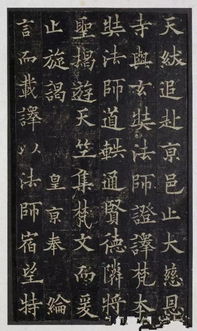 天紱追赴京邑止大慈恩
寺與玄奘法師證譯梵本
奘法師道軼通賢德隣將
聖揭遊天竺集梵文而爰
止旋謁 皇京奉 綸
言而載譯以法師宿望特